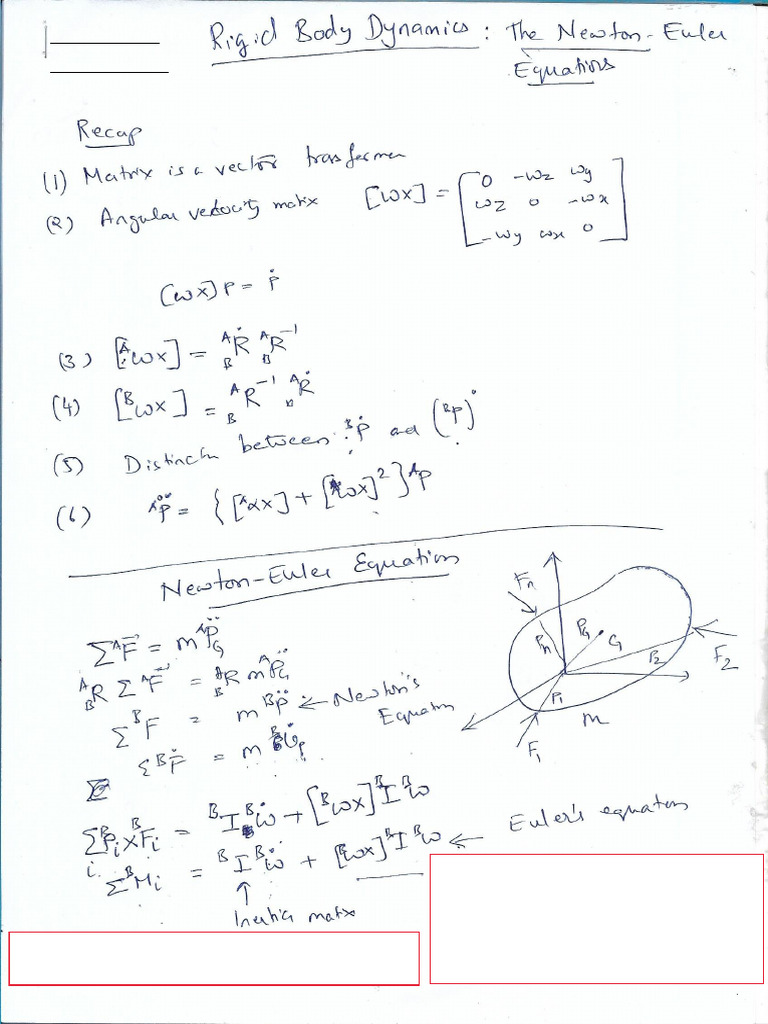 Rigid Body Dynamics : The Newton-Euler
Equations
Recap
(1) Matrix is a vector transformer
(2) Angular velocity matrix [ωx] = [0 -ωz ωy
ωz 0 -ωx
-ωy ωx 0]
[ωx]P = Ṗ
(3) [ᴬωx] = ᴬ_BṘ ᴬ_BR⁻¹
(4) [ᴮωx] = ᴬ_BR⁻¹ ᴬ_BṘ
(5) Distinctn between ᴮṖ and (ᴮP)˙
(6) ᴬP̈ = {[ᴬαx] + [ᴬωx]²}ᴬP
Newton-Euler Equation
ΣᴬF = m ᴬP̈_G
ᴬ_BR ΣᴬF = ᴬ_BR m ᴬP̈_G
ΣᴮF = m ᴮP̈ ← Newton's
Equation
Σ
Σ_i ᴮP_i x ᴮF_i = ᴮI ᴮω̇ + [ᴮωx] ᴮI ᴮω
ΣᴮM_i = ᴮI ᴮω̇ + [ᴮωx] ᴮI ᴮω ← Euler's equation
↑
Inertia matix
Fn
Pn
PG
G
P2
F2
P1
F1
m